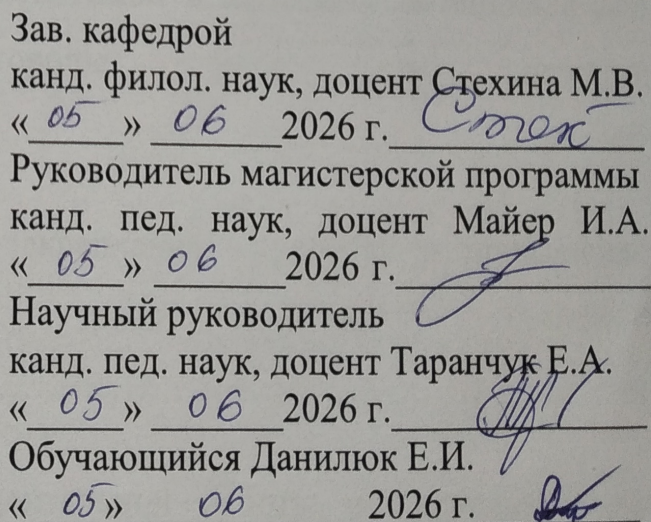 Зав. кафедрой
канд. филол. наук, доцент Стехина М.В.
« 05 » 06 2026 г.
Руководитель магистерской программы
канд. пед. наук, доцент Майер И.А.
« 05 » 06 2026 г.
Научный руководитель
канд. пед. наук, доцент Таранчук Е.А.
« 05 » 06 2026 г.
Обучающийся Данилюк Е.И.
« 05 » 06 2026 г.